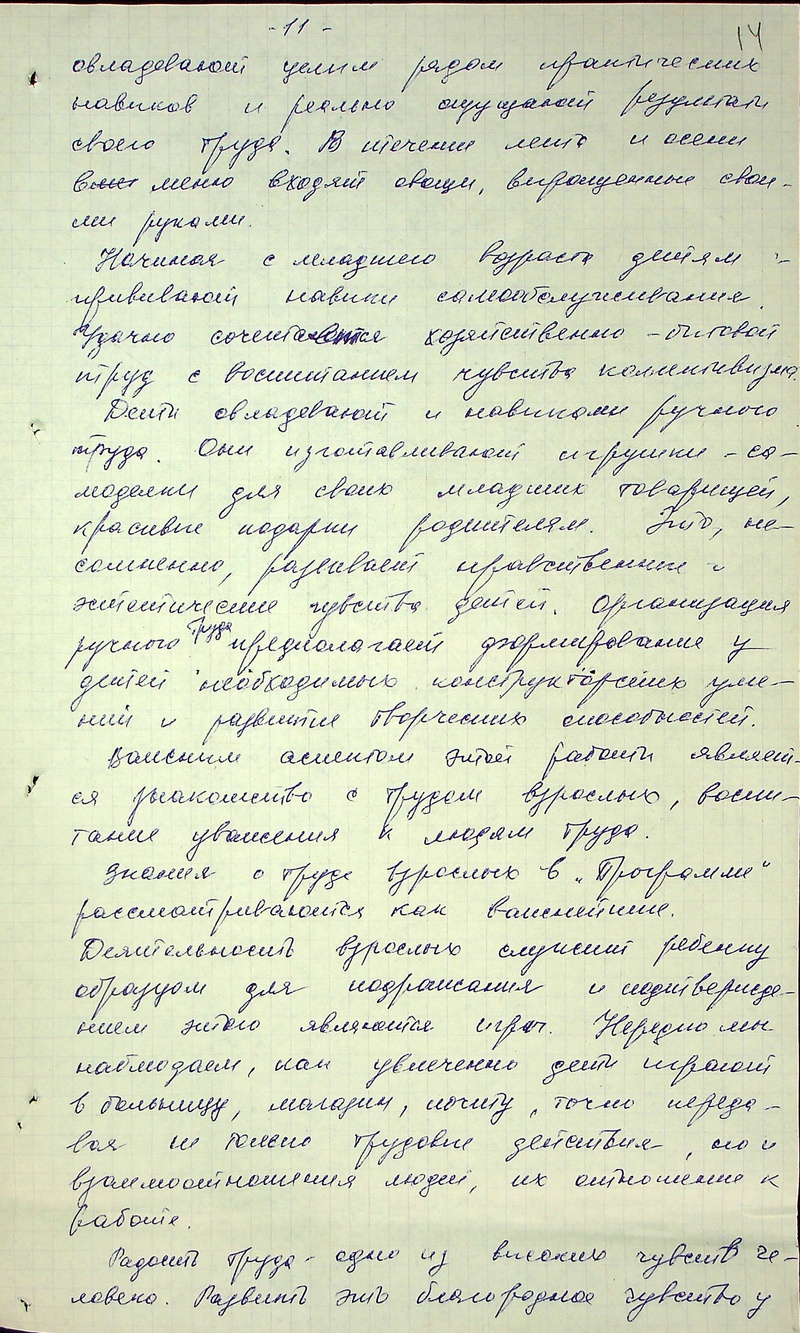 - 11 -
14
овладевают целым рядом практических
навыков и реально ощущают результаты
своего труда. В течении лета и осени
в меню входят овощи, выращенные свои-
ми руками.
Начиная с младшего возраста детям
прививают навыки самообслуживания.
Удачно сочетается хозяйственно-бытовой
труд с воспитанием чувства коллективизма.
Дети овладевают и навыками ручного
труда. Они изготавливают игрушки-са-
моделки для своих младших товарищей,
красивые подарки родителям. Это, не-
сомненно, развивает нравственные и
эстетические чувства детей. Организация
ручного труда предполагает формирование у
детей необходимых конструкторских уме-
ний и развитие творческих способностей.
Важным аспектом этой работы являет-
ся знакомство с трудом взрослых, воспи-
тание уважения к людям труда.
Знания о труде взрослых в „Программе"
рассматриваются как важнейшие.
Деятельность взрослых служит ребенку
образцом для подражания и подтвержде-
нием этого являются игры. Нередко мы
наблюдаем, как увлеченно дети играют
в больницу, магазин, почту, точно переда-
вая не только трудовые действия, но и
взаимоотношения людей, их отношение к
работе.
Радость труда - одно из высоких чувств че-
ловека. Развить это благородное чувство у